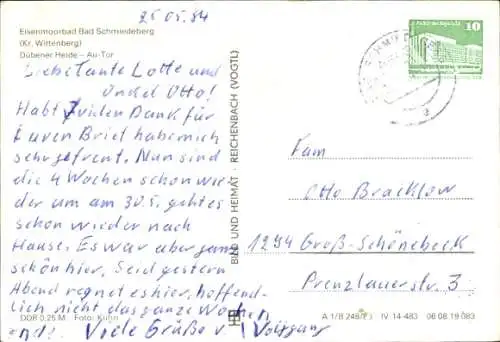 25.05.84
Eisenmoorbad Bad Schmiedeberg
(Kr. Wittenberg)
Dübener Heide – Au-Tor
Liebe Tante Lotte und
Onkel Otto!
Habt Vielen Dank für
Euren Brief habe mich
sehr gefreut. Nun sind
die 4 Wochen schon wie
der um am 30.5. geht es
schon wieder nach
Hause. Es war aber ganz
schön hier, Seid gestern
Abend regnet es hier, hoffend-
lich nicht das ganze Wochen
end! Viele Grüße v. Wolfgang
DDR 0,25 M Foto: Kühn
BILD UND HEIMAT · REICHENBACH (VOGTL)
10
a
Fam
Otto Bracklow
1294 Groß-Schönebeck
Prenzlauerstr. 3
A 1/B 248/83 IV-14-483 06 08 19 083